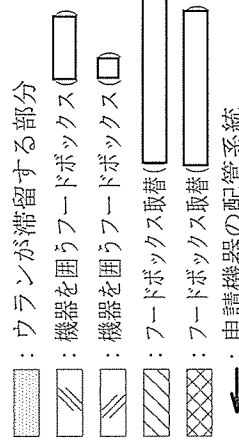 ：ウランが滞留する部分
：機器を囲うフードボックス(　　)
：機器を囲うフードボックス(　　)
：フードボックス取替(
：フードボックス取替(　　)
：申請機器の配管系統